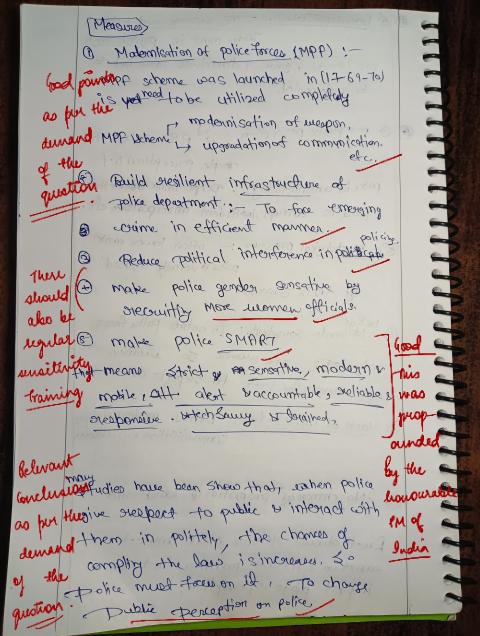 Measures
① Modernisation of police forces (MPF) :-
MPF scheme was launched in (1969-70)
is need to be utilized completely
MPF scheme → modernisation of weapon.
→ upgradation of communication.
etc.
② Build resilient infrastructure of
police department :- To face emerging
crime in efficient manner.
③ Reduce political interference in policing.
④ make police gender sensative by
recruiting more women officials
⑤ make police SMART
that means strict & sensative, modern &
mobile, alert & accountable, reliable &
responsive & techsavvy & trained.
many
studies have been show that, when police
give respect to public & interact with
them in politely, the chances of
complity the law is increases. So
Police must focus on it. To change
Public perception on police.
Good points
as per the
demand
of the
question.
There
should
also be
regular
sensitivity
training
Good
this
was
prop
ounded
by the
honourable
PM of
India
Relevant
conclusion
as per the
demand
of the
question.